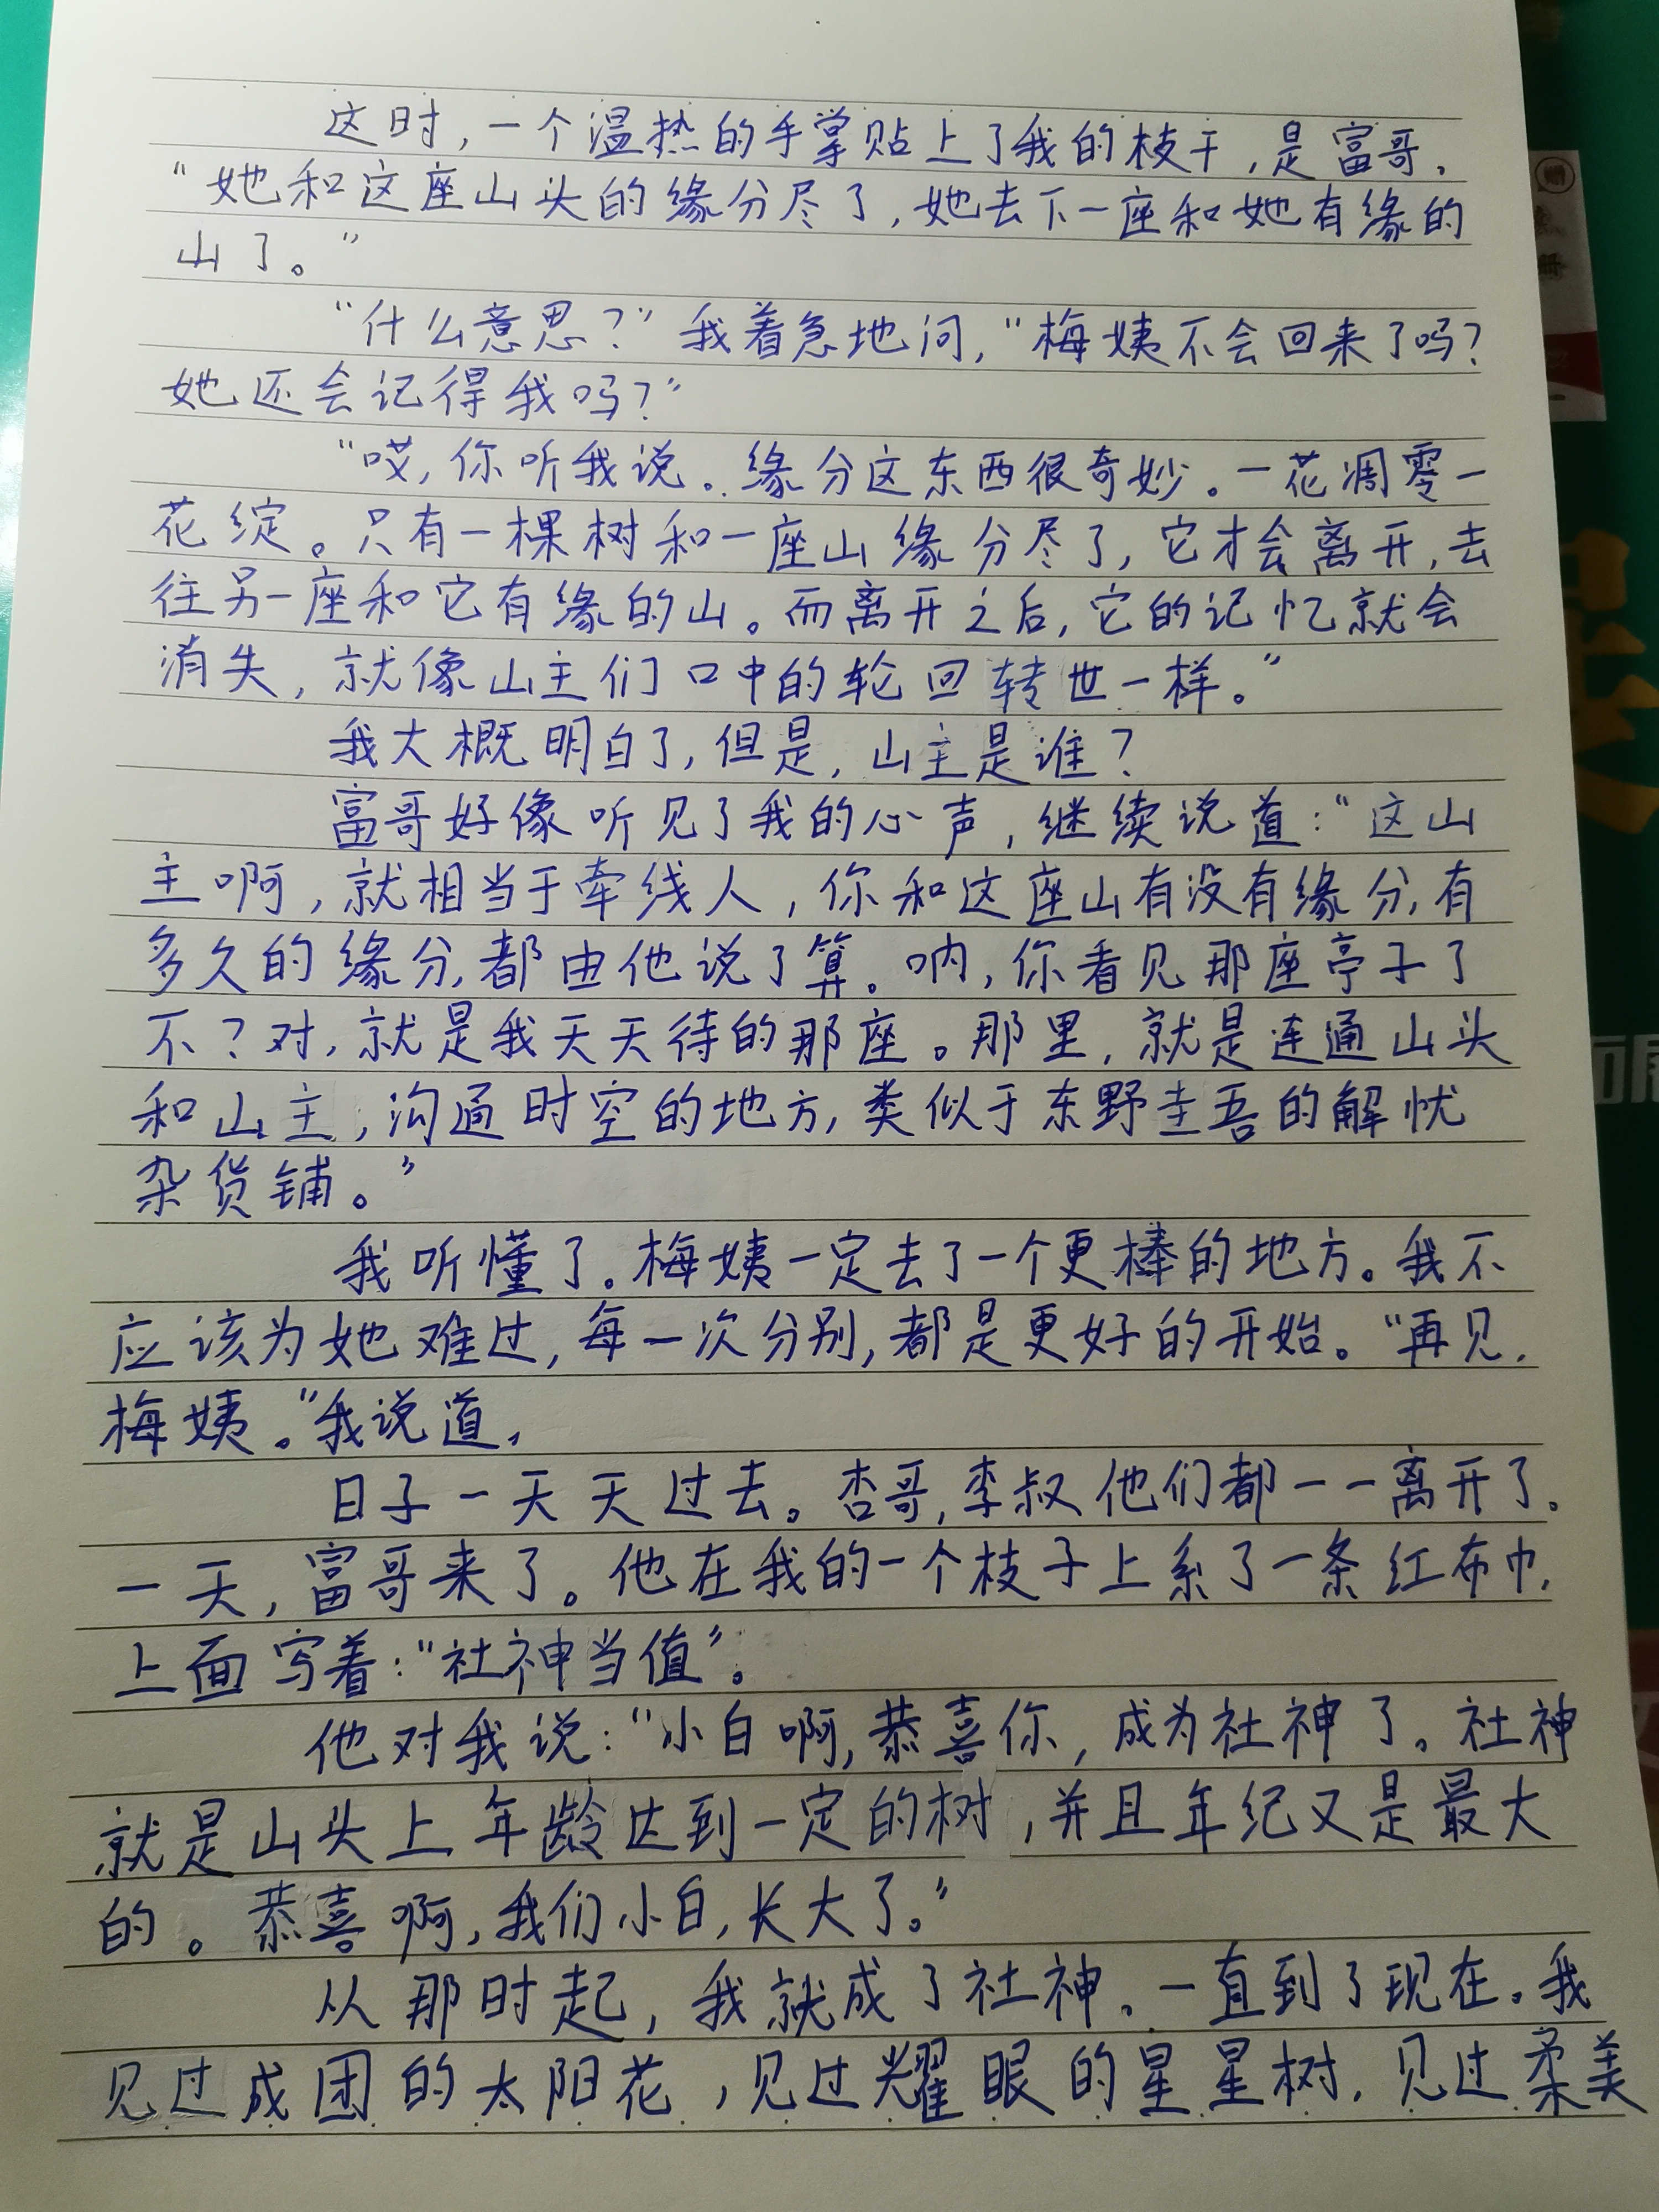 这时，一个温热的手掌贴上了我的枝干，是富哥。
“她和这座山头的缘分尽了，她去下一座和她有缘的
山了。”
“什么意思？”我着急地问，“梅姨不会回来了吗？
她还会记得我吗？”
“哎，你听我说。缘分这东西很奇妙。一花凋零一
花绽。只有一棵树和一座山缘分尽了，它才会离开，去
往另一座和它有缘的山。而离开之后，它的记忆就会
消失，就像山主们口中的轮回转世一样。”
我大概明白了，但是，山主是谁？
富哥好像听见了我的心声，继续说道：“这山
主啊，就相当于牵线人，你和这座山有没有缘分，有
多久的缘分，都由他说了算。呐，你看见那座亭子了
不？对，就是我天天待的那座。那里，就是连通山头
和山主，沟通时空的地方，类似于东野圭吾的解忧
杂货铺。”
我听懂了。梅姨一定去了一个更棒的地方。我不
应该为她难过，每一次分别，都是更好的开始。“再见，
梅姨。”我说道，
日子一天天过去。杏哥，李叔他们都一一离开了。
一天，富哥来了。他在我的一个枝子上系了一条红布巾，
上面写着：“社神当值”。
他对我说：“小白啊，恭喜你，成为社神了。社神
就是山头上年龄达到一定的树，并且年纪又是最大
的。恭喜啊，我们小白，长大了。”
从那时起，我就成了社神。一直到了现在。我
见过成团的太阳花，见过耀眼的星星树，见过柔美